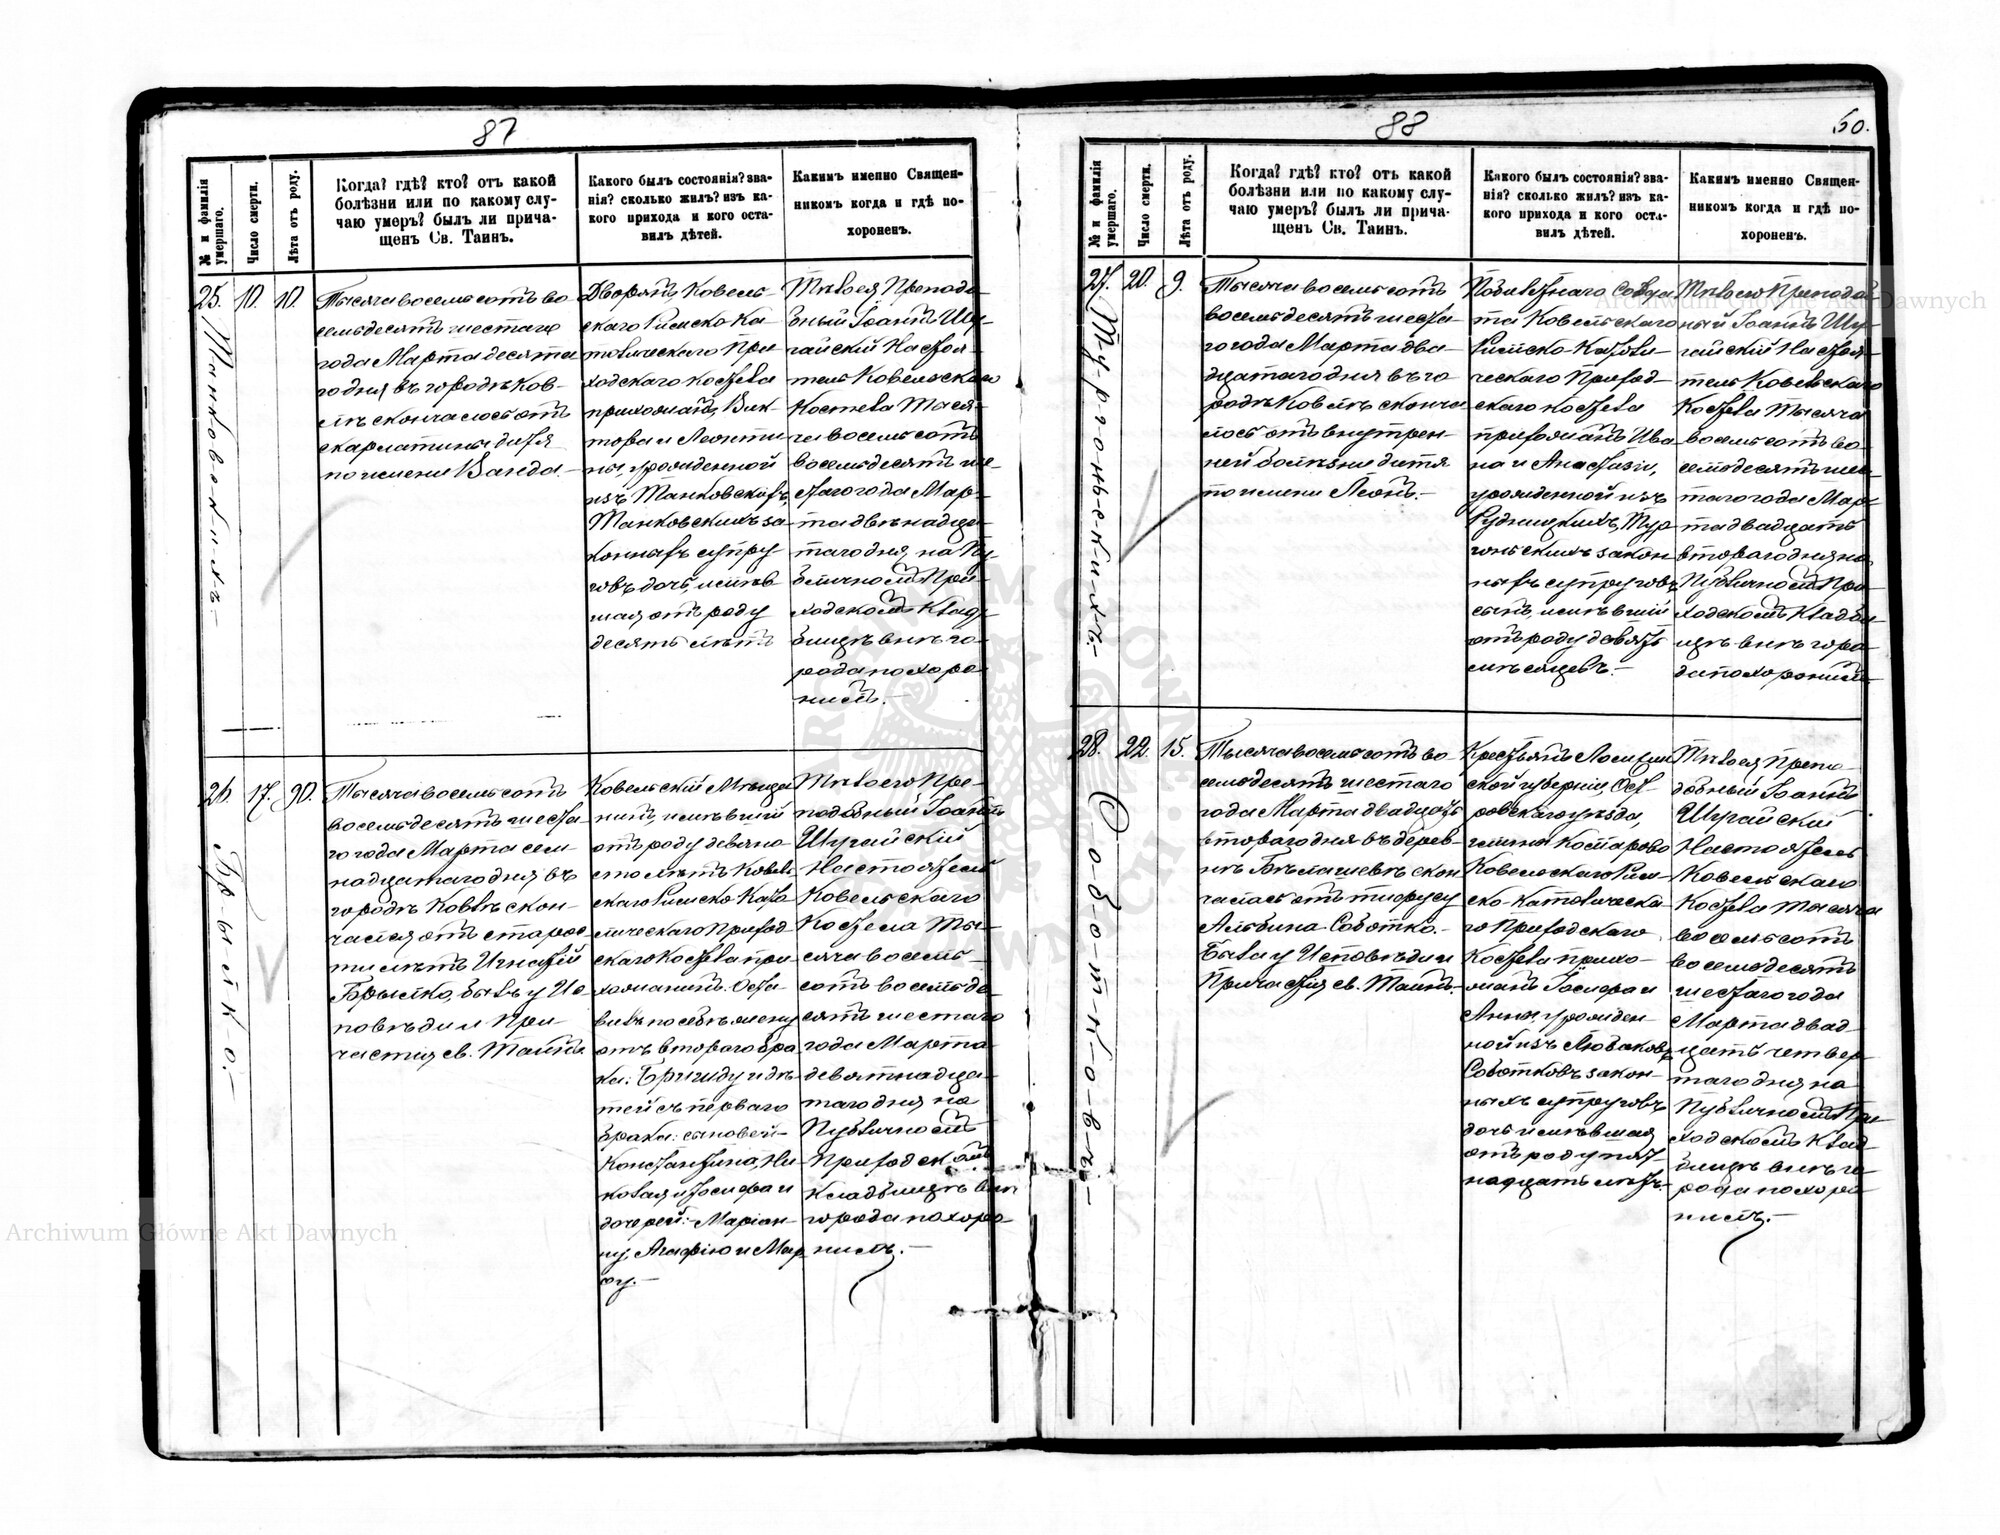 87
№ и фамилія умершаго.
Число смерти.
Лѣта отъ роду.
Когда? гдѣ? кто? отъ какой
болѣзни или по какому слу-
чаю умеръ? былъ ли прича-
щенъ Св. Таинъ.
Какого былъ состоянія? зва-
нія? сколько жилъ? изъ ка-
кого прихода и кого оста-
вилъ дѣтей.
Какимъ именно Священ-
никомъ когда и гдѣ по-
хороненъ.
25. Танковскихъ.
10.
10.
Тысяча восемьсотъ во
семьдесятъ шестаго
года Марта десята
го дня въ городѣ Ков-
лѣ скончалось отъ
скарлатины дитя
по имени Ванда.
Дворянъ Ковель-
скаго Римско Ка-
толическаго При
ходскаго костела
прихожанъ, Вик-
тора и Леонти
ны, урожденной
изъ
Танковскихъ за-
конныхъ супру-
говъ дочь, имѣв
шая отъ роду
десять лѣтъ
Тѣло ея Преподо
бный Іоаннъ Шу-
гайскій Настоя-
тель Ковельскаго
Костела Тыся-
ча восемьсотъ
восемьдесятъ ше-
стаго года Мар-
та двѣнадца-
таго дня на Пу-
бличномъ При-
ходскомъ Клад-
бищѣ внѣ го-
рода похоро
нилъ.
26. Брылко.
17.
90.
Тысяча восемьсотъ
восемьдесятъ шеста
го года Марта сем
надцатаго дня въ
городѣ Ковлѣ скон-
чался отъ старос
ти лѣтъ Игнатій
Брылко, былъ у Ис
повѣди и При
частія св. Таинъ.
Ковельскій Мѣща
нинъ, имѣвшій
отъ роду девяно-
сто лѣтъ Ковель
скаго Римско Като
лическаго Приход
скаго Костела при
хожанинъ. Оста-
вилъ по себѣ жену
отъ втораго бра
ка: Бригиду и дѣ
тей съ перваго
брака: сыновей-
Константина, Ни
колая и Іосифа и
дочерей: Маріан-
ну, Агафію и Мар
ѳу.
Тѣло его Пре-
подобный Іоаннъ
Шугайскій
Настоятель
Ковельскаго
Костела Ты-
сяча восемь-
сотъ восемьде
сятъ шестаго
года Марта
девятнадца-
таго дня на
Публичномъ
Приходскомъ
Кладбищѣ внѣ
города похоро
нилъ.
88
60.
№ и фамилія умершаго.
Число смерти.
Лѣта отъ роду.
Когда? гдѣ? кто? отъ какой
болѣзни или по какому слу-
чаю умеръ? былъ ли прича-
щенъ Св. Таинъ.
Какого былъ состоянія? зва-
нія? сколько жилъ? изъ ка-
кого прихода и кого оста-
вилъ дѣтей.
Какимъ именно Священ-
никомъ когда и гдѣ по-
хороненъ.
27. Тургоньскихъ.
20.
9.
Тысяча восемьсотъ
восемьдесятъ шеста
го года Марта два-
дцатаго дня въ го
родѣ Ковлѣ сконча
лось отъ внутрен-
ней болѣзни дитя
по имени Леонъ.
Ковельскаго
Римско-Католи-
ческаго Приход-
скаго костела
прихожанъ Ива
на и Анастазіи,
урожденной изъ
Рудницкихъ, Тур
гоньскихъ закон
ныхъ супруговъ
сынъ, имѣвшій
отъ роду девять
мѣсяцевъ.
Тѣло его Преподоб
ный Іоаннъ Шу-
гайскій Настоя-
тель Ковельскаго
Костела Тысяча
восемьсотъ во-
семьдесятъ шес-
таго года Мар-
та двадцать
втораго дня на
Публичномъ При
ходскомъ Кладби
щѣ внѣ горо-
да похоронилъ.
28. Соботковъ.
22.
15.
Тысяча восемьсотъ во
семьдесятъ шестаго
года Марта двадцать
втораго дня въ дерев-
нѣ скон
чалась отъ тифусу
Альбина Соботко.
Была у Исповѣди и
Причастія св. Таинъ.
Крестьянъ Ломжин
ской губерніи, Ост-
ровскаго уѣзда,
гмины Комарово
Ковельскаго Рим-
ско-Католическа
го Приходскаго
Костела прихо-
жанъ Іосифа и
Анны, урожден-
ной изъ
Соботковъ закон-
ныхъ супруговъ
дочь имѣвшая
отъ роду пят-
надцать лѣтъ.
Тѣло ея Препо-
добный Іоаннъ
Шугайскій
Настоятель
Ковельскаго
Костела Тысяча
восемьсотъ
восемьдесятъ
шестаго года
Марта двад-
цать четвер
таго дня на
Публичномъ При
ходскомъ Клад-
бищѣ внѣ го-
рода похоро
нилъ.
Archiwum Główne Akt Dawnych
Archiwum Główne Akt Dawnych